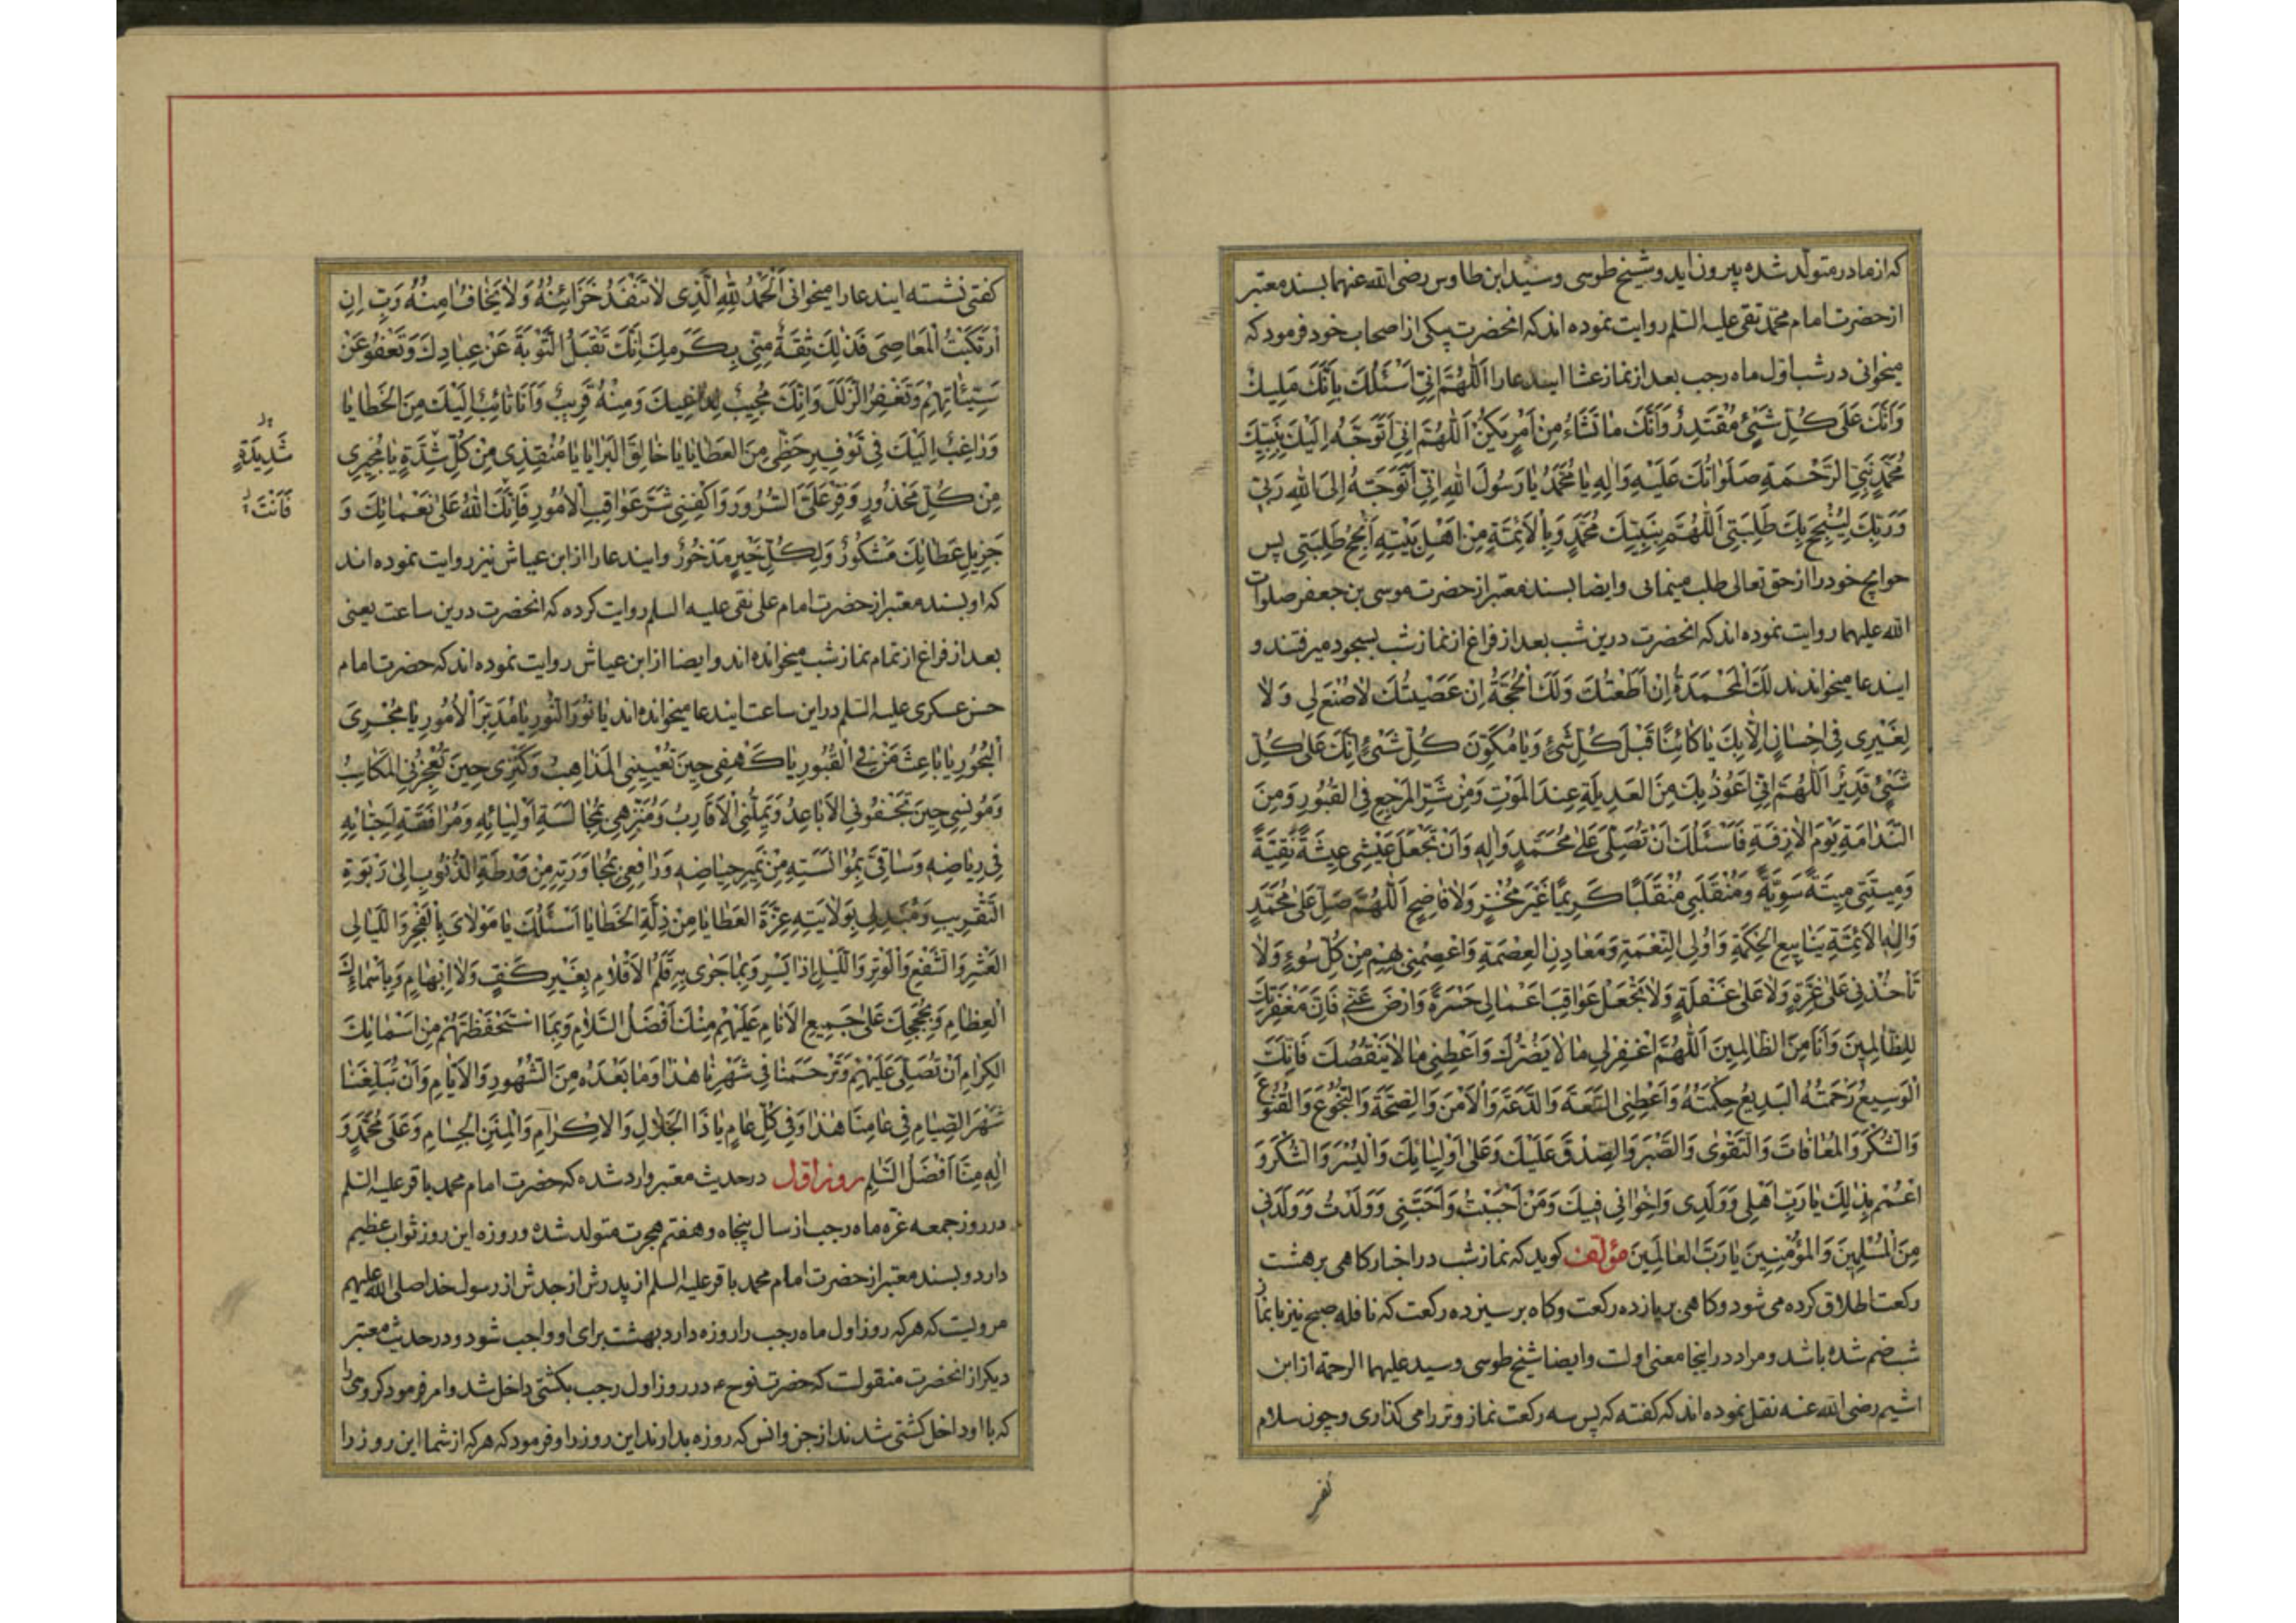 که از مادر متولد شده بیرون اید و شیخ طوسی و سید ابن طاوس رضی الله عنهما بسند معتبر
از حضرت امام محمد تقی علیه السلم روایت نموده اند که انحضرت بیکی از اصحاب خود فرمود که
میخوانی در شب اول ماه رجب بعد از نماز عشا ایندعا را اَللّهُمَّ اِنّی اَسْئَلُكَ بِاَنَّكَ مَلیكٌ
وَاَنَّكَ عَلی كُلِّ شَیْءٍ مُقْتَدِرٌ وَاَنَّكَ ما تَشاءُ مِنْ اَمْرٍ یَكُنْ اَللّهُمَّ اِنّی اَتَوَجَّهُ اِلَیْكَ بِنَبِیِّكَ
مُحَمَّدٍ نَبِیِّ الرَّحْمَةِ صَلَواتُكَ عَلَیْهِ وَالِهِ یا مُحَمَّدُ یا رَسُولَ اللهِ اِنّی اَتَوَجَّهُ اِلَی اللهِ رَبّی
وَرَبِّكَ لِیُنْجِحَ بِكَ طَلِبَتی اَللّهُمَّ بِنَبِیِّكَ مُحَمَّدٍ وَبِالْاَئِمَّةِ مِنْ اَهْلِ بَیْتِهِ اَنْجِحْ طَلِبَتی پس
حوایج خود را از حق تعالی طلب مینمائی وایضا بسند معتبر از حضرت موسی بن جعفر صلوات
الله علیهما روایت نموده اند که انحضرت درین شب بعد از فراغ از نماز شب بسجود میرفتند و
ایندعا میخواندند لَكَ الْمَحْمَدَةُ اِنْ اَطَعْتُكَ وَلَكَ الْحُجَّةُ اِنْ عَصَیْتُكَ لا صُنْعَ لی وَلا
لِغَیْری فی اِحْسانٍ اِلّا بِكَ یا كائِنًا قَبْلَ كُلِّ شَیْءٍ وَیا مُكَوِّنَ كُلِّ شَیْءٍ اِنَّكَ عَلی كُلِّ
شَیْءٍ قَدیرٌ اَللّهُمَّ اِنّی اَعُوذُ بِكَ مِنَ الْعَدیلَةِ عِنْدَ الْمَوْتِ وَمِنْ شَرِّ الْمَرْجِعِ فِی الْقُبُورِ وَمِنَ
النَّدامَةِ یَوْمَ الْازِفَةِ فَاَسْئَلُكَ اَنْ تُصَلِّیَ عَلی مُحَمَّدٍ وَالِهِ وَاَنْ تَجْعَلَ عَیْشی عیشَةً نَقِیَّةً
وَمیتَتی میتَةً سَوِیَّةً وَمُنْقَلَبی مُنْقَلَبًا كَریمًا غَیْرَ مُخْزٍ وَلا فاضِحٍ اَللّهُمَّ صَلِّ عَلی مُحَمَّدٍ
وَالِهِ الْاَئِمَّةِ یَنابیعِ الْحِكْمَةِ وَاُولِی النِّعْمَةِ وَمَعادِنِ الْعِصْمَةِ وَاعْصِمْنی بِهِمْ مِنْ كُلِّ سُوءٍ وَلا
تَأْخُذْنی عَلی غِرَّةٍ وَلا عَلی غَفْلَةٍ وَلا تَجْعَلْ عَواقِبَ اَعْمالی حَسْرَةً وَارْضَ عَنّی فَاِنَّ مَغْفِرَتَكَ
لِلظّالِمینَ وَاَنَا مِنَ الظّالِمینَ اَللّهُمَّ اغْفِرْ لی ما لا یَضُرُّكَ وَاَعْطِنی ما لا یَنْقُصُكَ فَاِنَّكَ
الْوَسیعُ رَحْمَتُهُ الْبَدیعُ حِكْمَتُهُ وَاَعْطِنِی السَّعَةَ وَالدَّعَةَ وَالْاَمْنَ وَالصِّحَّةَ وَالنُّجُوعَ وَالْقُنُوعَ
وَالشُّكْرَ وَالْمُعافاةَ وَالتَّقْوی وَالصَّبْرَ وَالصِّدْقَ عَلَیْكَ وَعَلی اَوْلِیائِكَ وَالْیُسْرَ وَالشُّكْرَ وَ
اعْمُمْ بِذلِكَ یا رَبِّ اَهْلی وَوَلَدی وَاِخْوانی فیكَ وَمَنْ اَحْبَبْتُ وَاَحَبَّنی وَوَلَدْتُ وَوَلَدَنی
مِنَ الْمُسْلِمینَ وَالْمُؤْمِنینَ یا رَبَّ الْعالَمینَ مؤلف کوید که نماز شب در اخبار کاهی بر هشت
رکعت اطلاق کرده می شود و کاهی بر یازده رکعت وکاه بر سیزده رکعت که نافله صبح نیز با نماز
شب ضم شده باشد و مراد در اینجا معنی اولست وایضا شیخ طوسی و سید علیهما الرحمة از ابن
اشیم رضی الله عنه نقل نموده اند که کفته که پس سه رکعت نماز وتر را می کذاری و چون سلام
کفتی نشسته ایندعا را میخوانی اَلْحَمْدُ لِلّهِ الَّذی لا تَنْفَدُ خَزائِنُهُ وَلا یَخافُ امِنُهُ رَبِّ اِنِ
ارْتَكَبْتُ الْمَعاصِیَ فَذلِكَ ثِقَةٌ مِنّی بِكَرَمِكَ اِنَّكَ تَقْبَلُ التَّوْبَةَ عَنْ عِبادِكَ وَتَعْفُو عَنْ
سَیِّئاتِهِمْ وَتَغْفِرُ الزَّلَلَ وَاِنَّكَ مُجیبٌ لِداعیكَ وَمِنْهُ قَریبٌ وَاَنَا تائِبٌ اِلَیْكَ مِنَ الْخَطایا
وَراغِبٌ اِلَیْكَ فی تَوْفیرِ حَظّی مِنَ الْعَطایا یا خالِقَ الْبَرایا یا مُنْقِذی مِنْ كُلِّ شِدَّةٍ یا مُجیری
شَدیدَةٍ
مِنْ كُلِّ مَحْذُورٍ وَفِّرْ عَلَیَّ السُّرُورَ وَاكْفِنی شَرَّ عَواقِبِ الْاُمُورِ فَاِنَّكَ اللهُ عَلی نَعْمائِكَ وَ
فَاَنْتَ
جَزیلِ عَطائِكَ مَشْكُورٌ وَلِكُلِّ خَیْرٍ مَذْخُورٌ وایندعا را از ابن عیاش نیز روایت نموده اند
که او بسند معتبر از حضرت امام علی نقی علیه السلم روایت کرده که انحضرت درین ساعت یعنی
بعد از فراغ از تمام نماز شب میخوانده اند وایضا از ابن عیاش روایت نموده اند که حضرت امام
حسن عسکری علیه السلم دراین ساعت ایندعا میخوانده اند یا نُورَ النُّورِ یا مُدَبِّرَ الْاُمُورِ یا مُجْرِیَ
الْبُحُورِ یا باعِثَ مَنْ فِی الْقُبُورِ یا كَهْفی حینَ تُعْیینِی الْمَذاهِبُ وَكَنْزی حینَ تُعْجِزُنِی الْمَكاسِبُ
وَمُونِسی حینَ تَجْفُونِی الْاَباعِدُ وَتَمَلُّنِی الْاَقارِبُ وَمُنَزِّهی بِمُجالَسَةِ اَوْلِیائِهِ وَمُرافَقَةِ اَحِبّائِهِ
فی ریاضِهِ وَساقِیَّ بِمُؤانَسَتِهِ مِنْ نَمیرِ حِیاضِهِ وَرافِعی بِمُجاوَرَتِهِ مِنْ وَرْطَةِ الذُّنُوبِ اِلی رَبْوَةِ
التَّقْریبِ وَمُبَدِّلی بِوَلایَتِهِ عِزَّةَ الْعَطایا مِنْ ذِلَّةِ الْخَطایا اَسْئَلُكَ یا مَوْلایَ بِالْفَجْرِ وَاللَّیالِی
الْعَشْرِ وَالشَّفْعِ وَالْوَتْرِ وَاللَّیْلِ اِذا یَسْرِ وَبِما جَری بِهِ قَلَمُ الْاَقْلامِ بِغَیْرِ كَفٍّ وَلا اِبْهامٍ وَبِاَسْمائِكَ
الْعِظامِ وَبِحُجَجِكَ عَلی جَمیعِ الْاَنامِ عَلَیْهِمْ مِنْكَ اَفْضَلُ السَّلامِ وَبِمَا اسْتَحْفَظْتَهُمْ مِنْ اَسْمائِكَ
الْكِرامِ اَنْ تُصَلِّیَ عَلَیْهِمْ وَتَرْحَمَنا فی شَهْرِنا هذا وَما بَعْدَهُ مِنَ الشُّهُورِ وَالْاَیّامِ وَاَنْ تُبَلِّغَنا
شَهْرَ الصِّیامِ فی عامِنا هذا وَفی كُلِّ عامٍ یا ذَا الْجَلالِ وَالْاِكْرامِ وَالْمِنَنِ الْجِسامِ وَعَلی مُحَمَّدٍ وَ
الِهِ مِنّا اَفْضَلُ السَّلمِ روز اول در حدیث معتبر وارد شده که حضرت امام محمد باقر علیه السلم
در روز جمعه غره ماه رجب از سال پنجاه و هفتم هجرت متولد شده و روزه این روز ثواب عظیم
دارد و بسند معتبر از حضرت امام محمد باقر علیه السلم از پدرش از جدش از رسول خدا صلی الله علیهم
مرویست که هرکه روز اول ماه رجب را روزه دارد بهشت برای او واجب شود و در حدیث معتبر
دیکر از انحضرت منقولست که حضرت نوح ع در روز اول رجب بکشتی داخل شد و امر فرمود کروهی را
که با او داخل کشتی شدند از جن و انس که روزه بدارند این روز را و فرمود که هرکه از شما این روز را